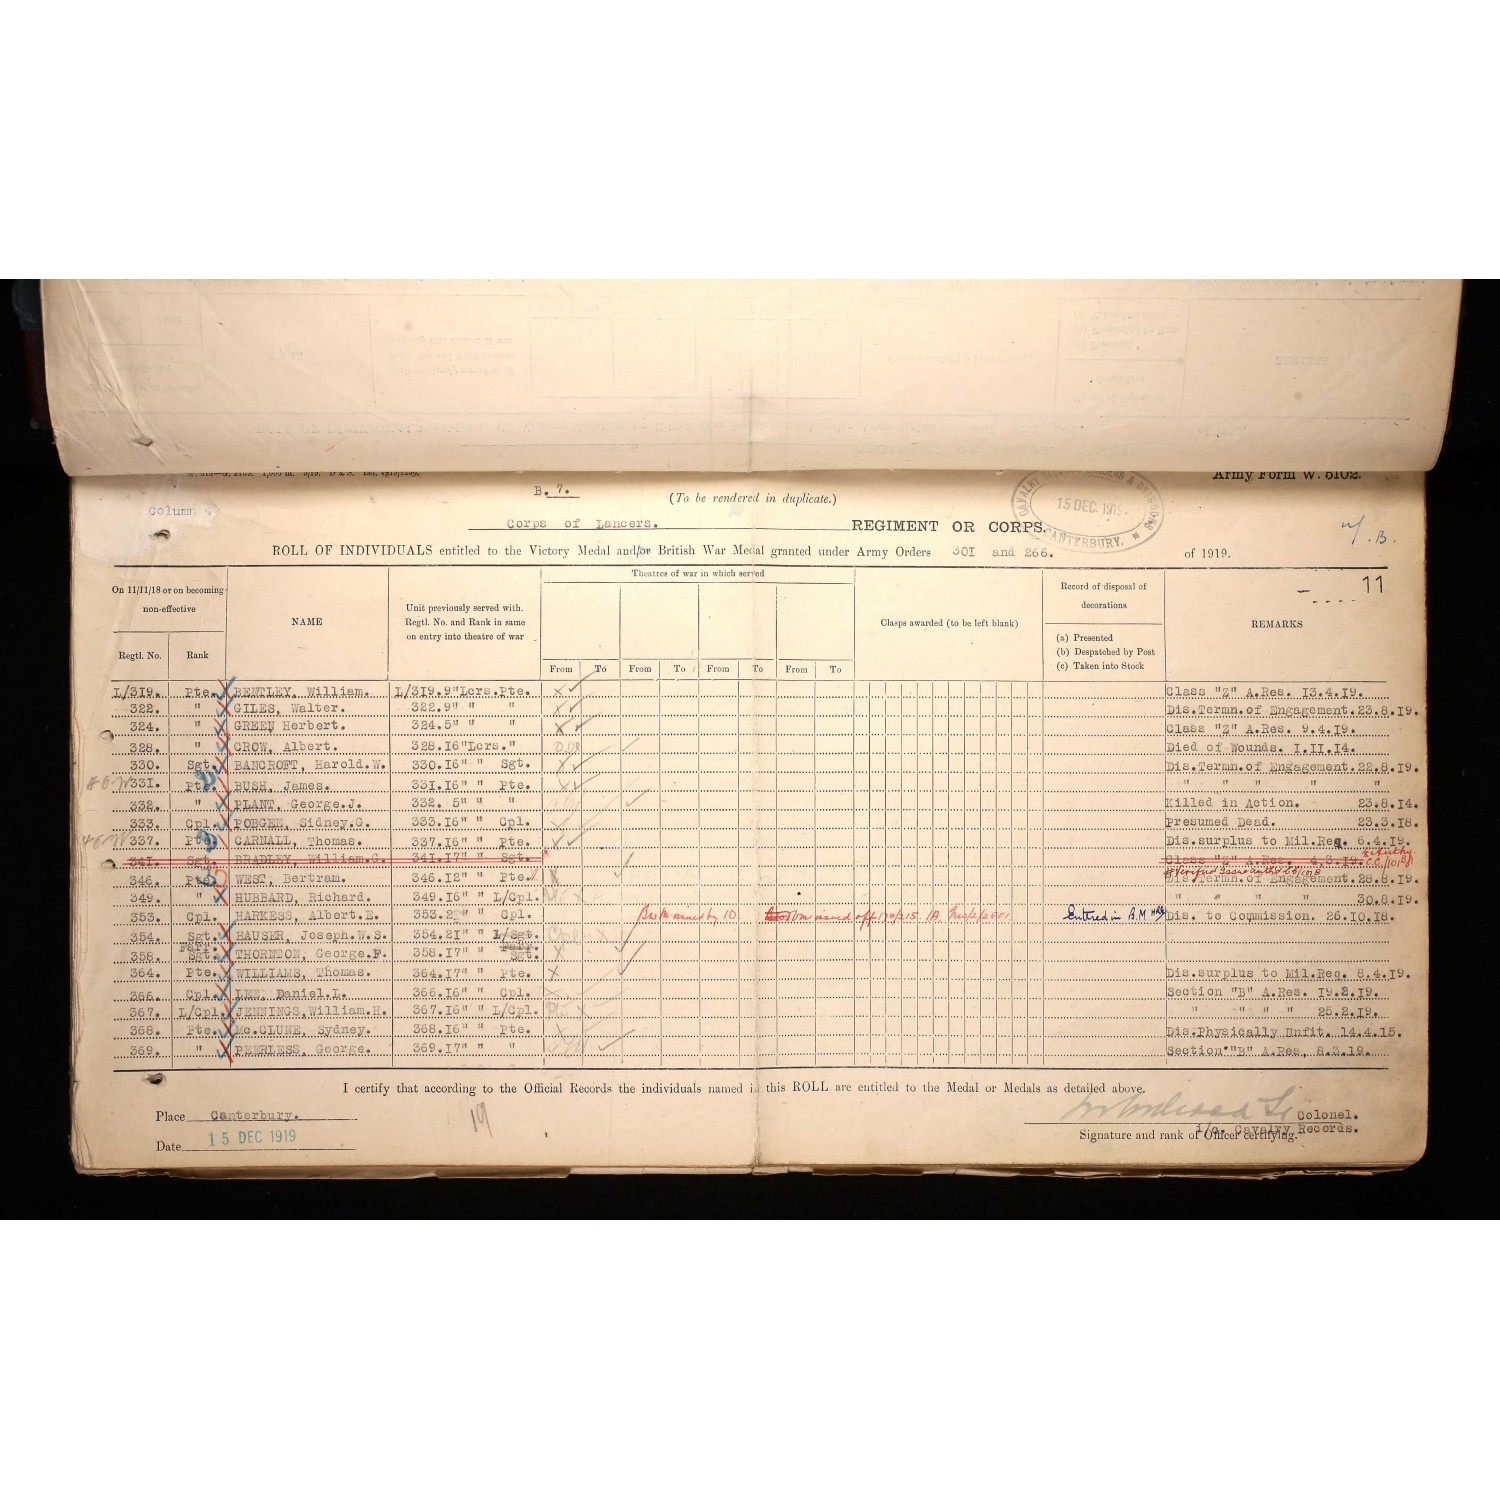 Army Form W. 5102.
B. 7.
(To be rendered in duplicate.)
Column
Corps of Lancers. REGIMENT OR CORPS.
CANTERBURY.
15 DEC. 1919
ROLL OF INDIVIDUALS entitled to the Victory Medal and/or British War Medal granted under Army Orders 301 and 266. of 1919.
11
On 11/11/18 or on becoming non-effective
Regtl. No. Rank
NAME
Unit previously served with. Regtl. No. and Rank in same on entry into theatre of war
Theatres of war in which served
From To From To From To From To
Clasps awarded (to be left blank)
Record of disposal of decorations
(a) Presented
(b) Despatched by Post
(c) Taken into Stock
REMARKS
L/319. Pte. BENTLEY, William. L/319.9"Lcrs.Pte. Class "Z" A.Res. 13.4.19.
322. " GILES, Walter. 322.9" " " Dis.Termn.of Engagement.23.8.19.
324. " GREEN Herbert. 324.5" " " Class "Z" A.Res. 9.4.19.
328. " CROW, Albert. 328.16"Lcrs." Died of Wounds. I.II.14.
330. Sgt. BANCROFT, Harold.W. 330.16" " Sgt. Dis.Termn.of Engagement.22.8.19.
331. Pte. BUSH, James. 331.16" " Pte. " " " " "
332. " PLANT, George.J. 332. 5" " " Killed in Action. 23.8.14.
333. Cpl. POBGEE, Sidney.G. 333.16" " Cpl. Presumed Dead. 23.3.18.
337. Pte. CARNALL, Thomas. 337.16" " Pte. Dis.surplus to Mil.Req. 6.4.19.
341. Sgt. BRADLEY, William.G. 341.17" " Sgt. Class "Z" A.Res. 4.3.19.
346. Pte. WEST, Bertram. 346.12" " Pte. Dis.Termn.of Engagement.28.8.19.
349. " HUBBARD, Richard. 349.16" " L/Cpl. " " " " 30.8.19.
353. Cpl. HARKESS, Albert.E. 353.2" " Cpl. Entered in B.M Dis. to Commission. 26.10.18.
354. Sgt. HAUSER, Joseph.W.S. 354.21" " L/Sgt.
358. Farr. Sgt. THORNTON, George.F. 358.17" " Sgt.
364. Pte. WILLIAMS, Thomas. 364.17" " Pte. Dis.surplus to Mil.Req. 8.4.19.
366. Cpl. LEE, Daniel.L. 366.16" " Cpl. Section "B" A.Res. 19.2.19.
367. L/Cpl. JENNINGS,William.H. 367.16" " L/Cpl. " " " " 25.2.19.
368. Pte. Mc.CLUNE, Sydney. 368.16" " Pte. Dis.Physically Unfit. 14.4.15.
369. " PEERLESS, George. 369.17" " " Section "B" A.Res, 8.3.19.
I certify that according to the Official Records the individuals named in this ROLL are entitled to the Medal or Medals as detailed above.
Place Canterbury.
Date 15 DEC 1919
19
Colonel.
i/c. Cavalry Records.
Signature and rank of Officer certifying.